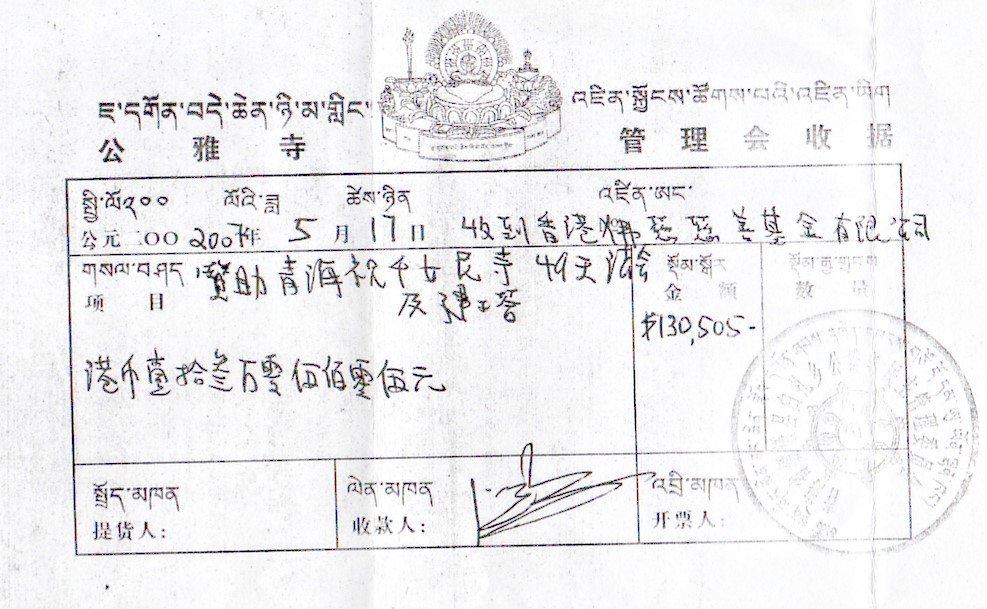 ཇ་དགོན་བདེ་ཆེན་ཉི་མ་གླིང་ འཛིན་སྐྱོངས་ཚོགས་པའི་འཛིན་ཡིག
公雅寺 管理会收据
སྤྱི་ལོ༢༠༠ ལོའི་ཟླ ཚེས་ཉིན འཛིན་ཨང་
公元二〇〇2007年 5月17日 收到香港 慈慈善基金有限公司
གསལ་བ་ཤད 資助青海 寺 49天法会 སྡོམ་སྐོར
项目 及建塔 金额 数量
$130,505-
港币壹拾叁万零伍佰零伍元
སྤྲོད་མཁན ལེན་མཁན འབྲི་མཁན
提货人: 收款人: 开票人: